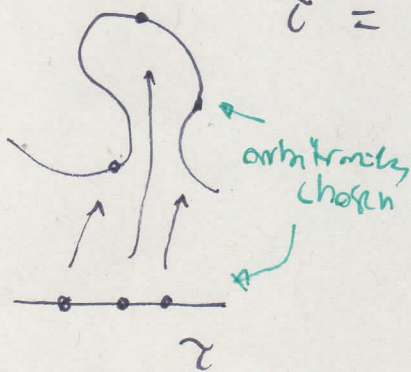 τ =
arbitrarily
chosen
τ